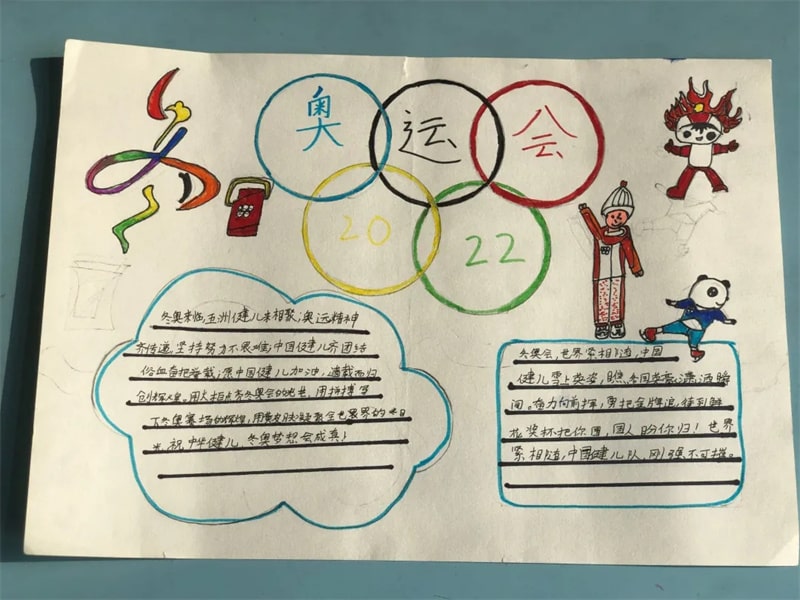 奥 运 会
20 22
冬奥来临,五洲健儿来相聚,奥运精神
齐传递,坚持努力不畏难,中国健儿齐团结
浴血奋把誉载;愿中国健儿加油,满载而归
创辉煌,用点冬奥会的,用拼搏写
下冬奥赛场的辉煌,用黄皮肤凝聚全世界的
光,祝中华健儿,冬奥梦想会成真!
冬奥会,世界紧相连,中国
健儿雪上英姿,瞧,冬同英豪,潇洒瞬
间。奋力向前挥,勇把金牌追,待到
奖杯把你围,国人盼你归!世界
紧相连,中国健儿队,刚强不可摧。